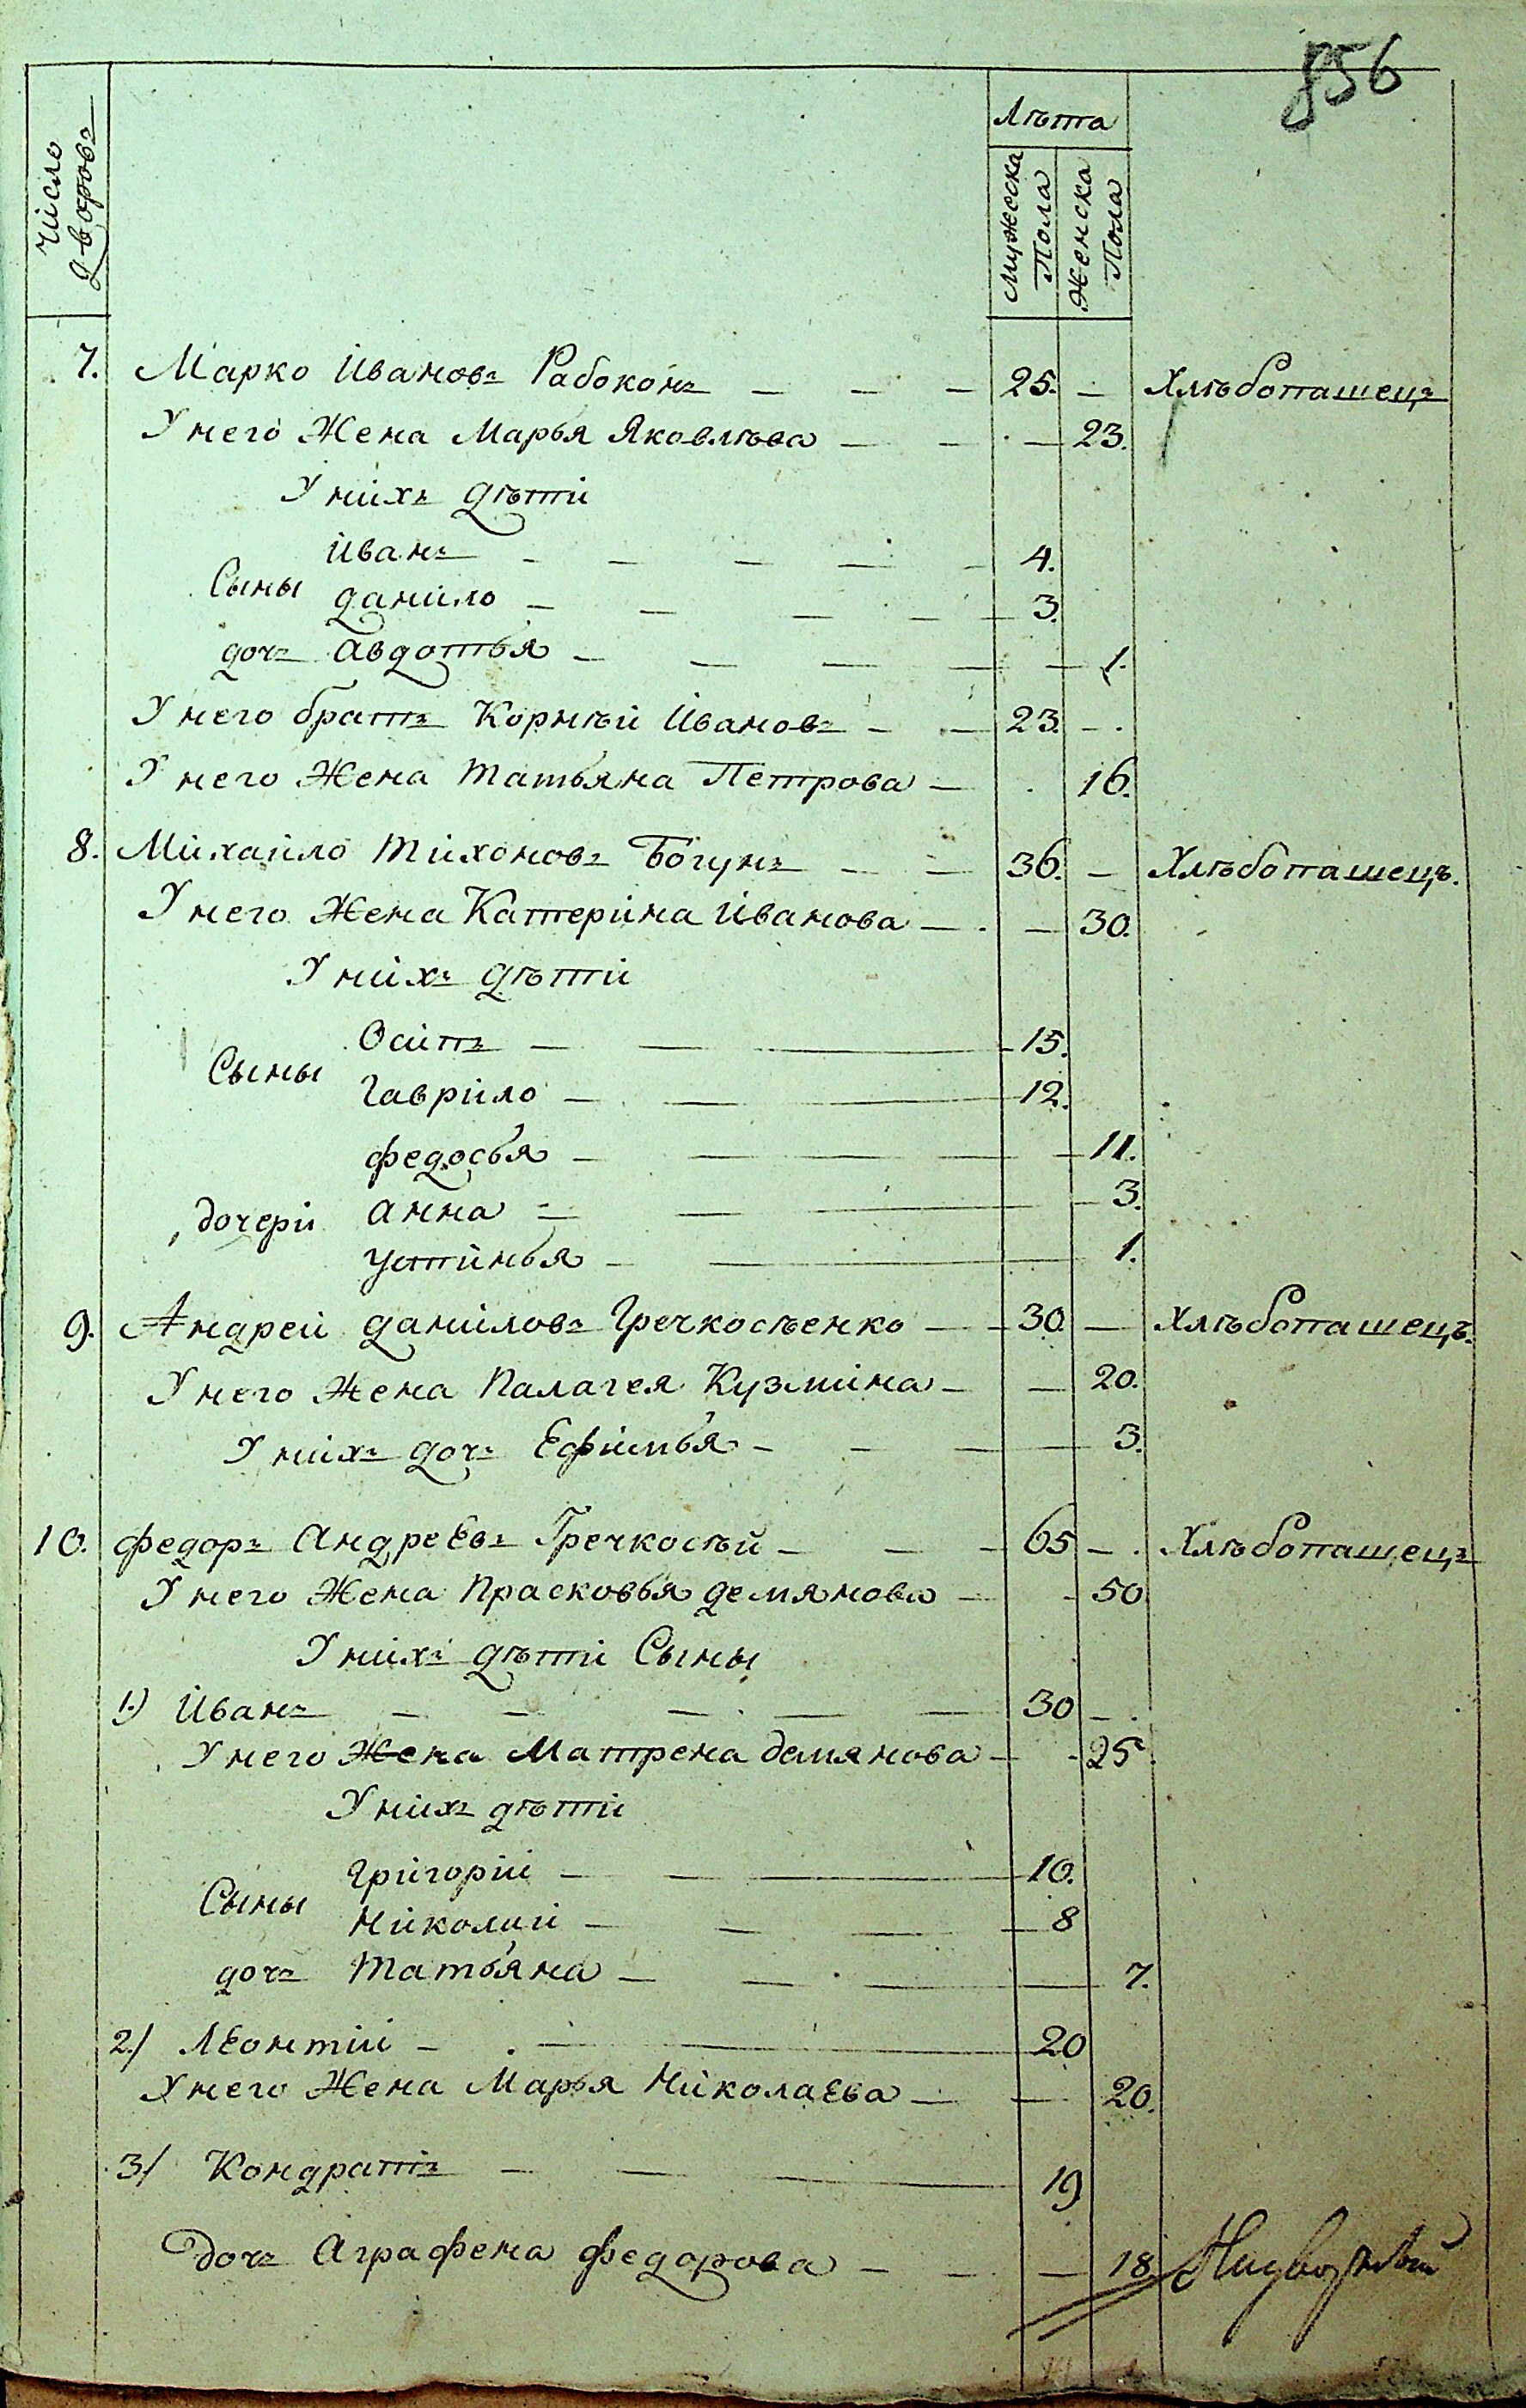 856
число дворовъ
Лѣта
мужеска пола
женска пола
7. Марко Ивановъ Рабоконъ — — — 25. — Хлѣбопашецъ
У него Жена Марья Яковлѣва — — — 23.
У нихъ дѣти
Иванъ — — — — — 4.
Сыны
данило — — — — — 3.
дочъ авдотья — — — — — 1.
У него братъ Корнѣй Ивановъ — — 23. —
У него Жена Татьяна Петрова — 16.
8. Михайло Тихоновъ Богунъ — — 36. — Хлѣбопашецъ.
У него Жена Катерина Иванова — — 30.
У нихъ дѣти
Осипъ — — — 15.
Сыны
Гаврило — — — 12.
федосья — — — 11.
дочери анна — — — 3.
устинья — — 1.
9. Андрей даниловъ Гречкосѣенко — — 30. — Хлѣбопашецъ.
У него Жена Палагея Кузмина — — 20.
У нихъ дочъ Ефимья — — — 3.
10. федоръ андреевъ Гречкосѣй — — — 65 — Хлѣбопашецъ
У него Жена Прасковья демянова — - 50
У нихъ дѣти Сыны
1.) Иванъ — — — — — 30 —
У него Жена Матрена демянова — - 25
У нихъ дѣти
Григорій — — 10.
Сыны
Николай — — — 8
дочъ Татьяна — — — 7.
2./ Леонтій — — — 20
У него Жена Марья Николаева — — 20.
3/ Кондратъ — — — 19
дочъ Аграфена федорова — — — 18